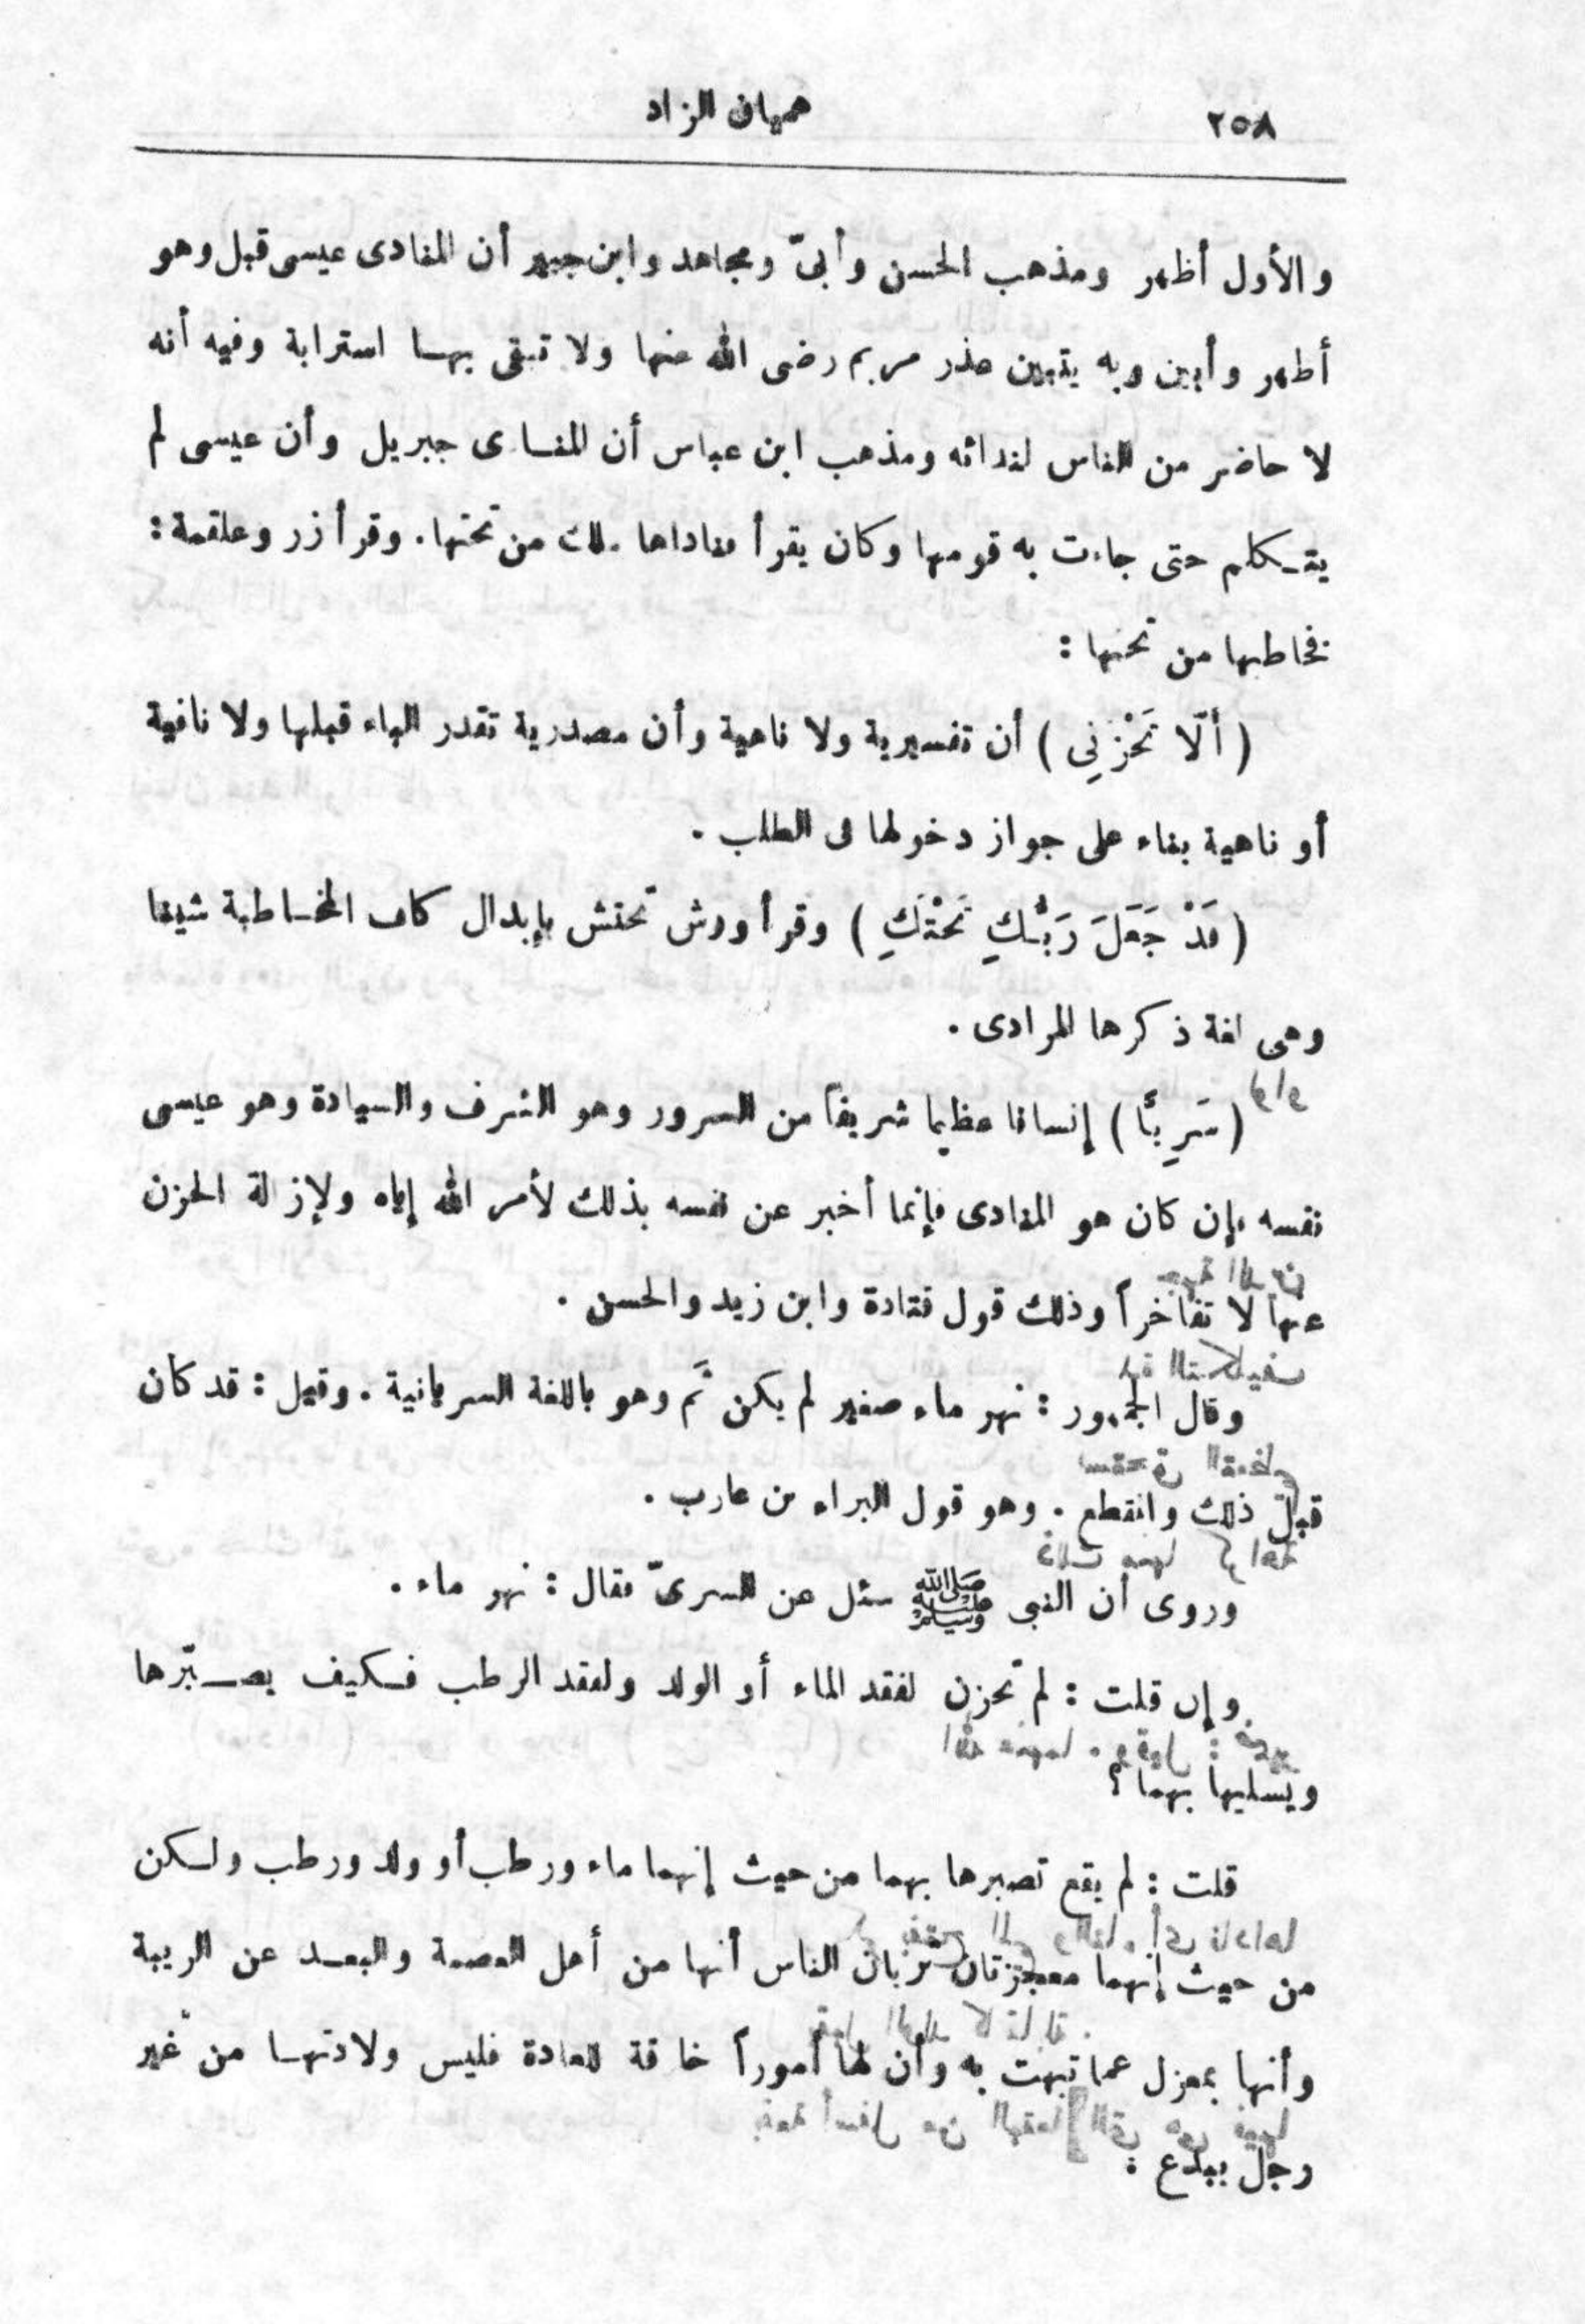 ٢٥٨
هميان الزاد
والأول أظهر ومذهب الحسن وأبىّ ومجاهد وابن جبير أن المنادى عيسى قيل وهو
أظهر وأبين وبه يتبين عذر مريم رضى الله عنها ولا تبقى بهـا استرابة وفيه أنه
لا حاضر من الناس لندائه ومذهب ابن عباس أن المنـا ى جبريل وأن عيسى لم
يتـكلم حتى جاءت به قومها وكان يقرأ فناداها ملك من تحتها. وقرأ زر وعلقمة :
فخاطبها من تحتها :
( أَلّا تَحْزَنِى ) أن تفسيرية ولا ناهية وأن مصدرية تقدر الباء قبلها ولا نافية
أو ناهية بناء على جواز دخولها فى الطلب .
( قَدْ جَعَلَ رَبُّـكِ تَحْتَكِ ) وقرأ ورش تحتش بإبدال كاف المخـاطبة شينا
وهى لغة ذكرها المرادى .
( سَرِيًّا ) إنسانا عظيما شريفاً من السرور وهو الشرف والسيادة وهو عيسى
نفسه فإن كان هو المنادى فإنما أخبر عن نفسه بذلك لأمر الله إياه ولإزالة الحزن
عنها لا تفاخراً وذلك قول قتادة وابن زيد والحسن .
وقال الجمهور : نهر ماء صغير لم يكن ثَم وهو باللغة السريانية . وقيل : قد كان
قبل ذلك وانقطع . وهو قول البراء بن عارب .
وروى أن النبى ﷺ سئل عن السرىّ فقال : نهر ماء .
وإن قلت : لم تحزن لفقد الماء أو الولد ولفقد الرطب فـكيف يصـبّرها
ويسليها بهما ؟
قلت : لم يقع تصبرها بهما من حيث إنهما ماء ورطب أو ولد ورطب ولـكن
من حيث إنهما معجزتان تربان الناس أنها من أهل العصمة والبعـد عن الريبة
وأنها بمعزل عما تبهت به وأن لها أموراً خا قة للعادة فليس ولادتهـا من غير
رجل ببدع :